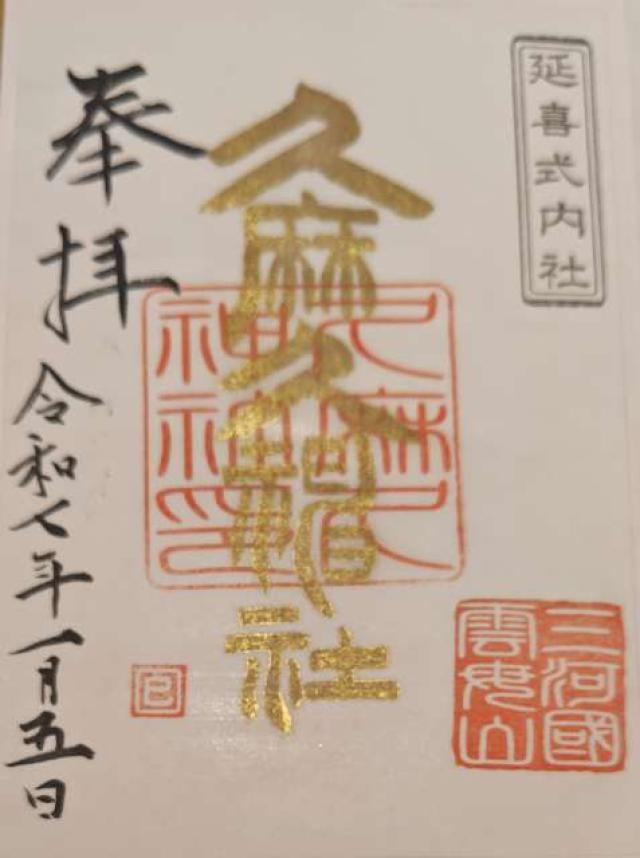 延喜式内社
久麻久神社
久麻久
神社印
三河國
雲母山
奉拝
令和七年一月五日
巳